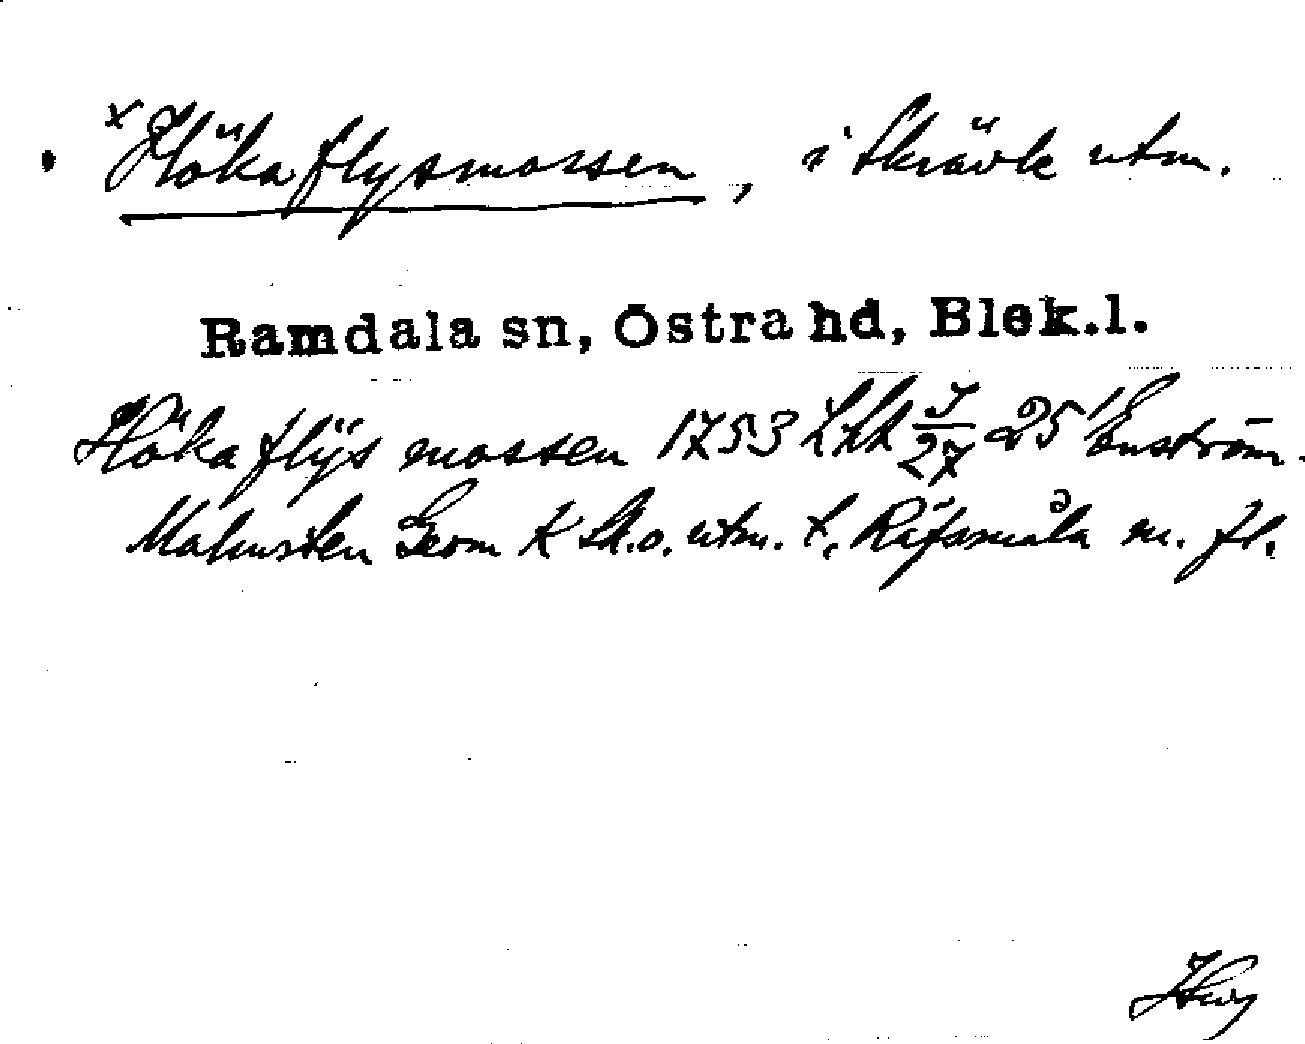 × Hökaflysmossen, i Skrävle utm.
Ramdala sn, Östra hd, Blek.l.
Höka flÿs mossen 1753 LhK J/27 25¹ Enström.
Malmsten Geom K Sk.o. utm. t. Räfsmåla m. fl.